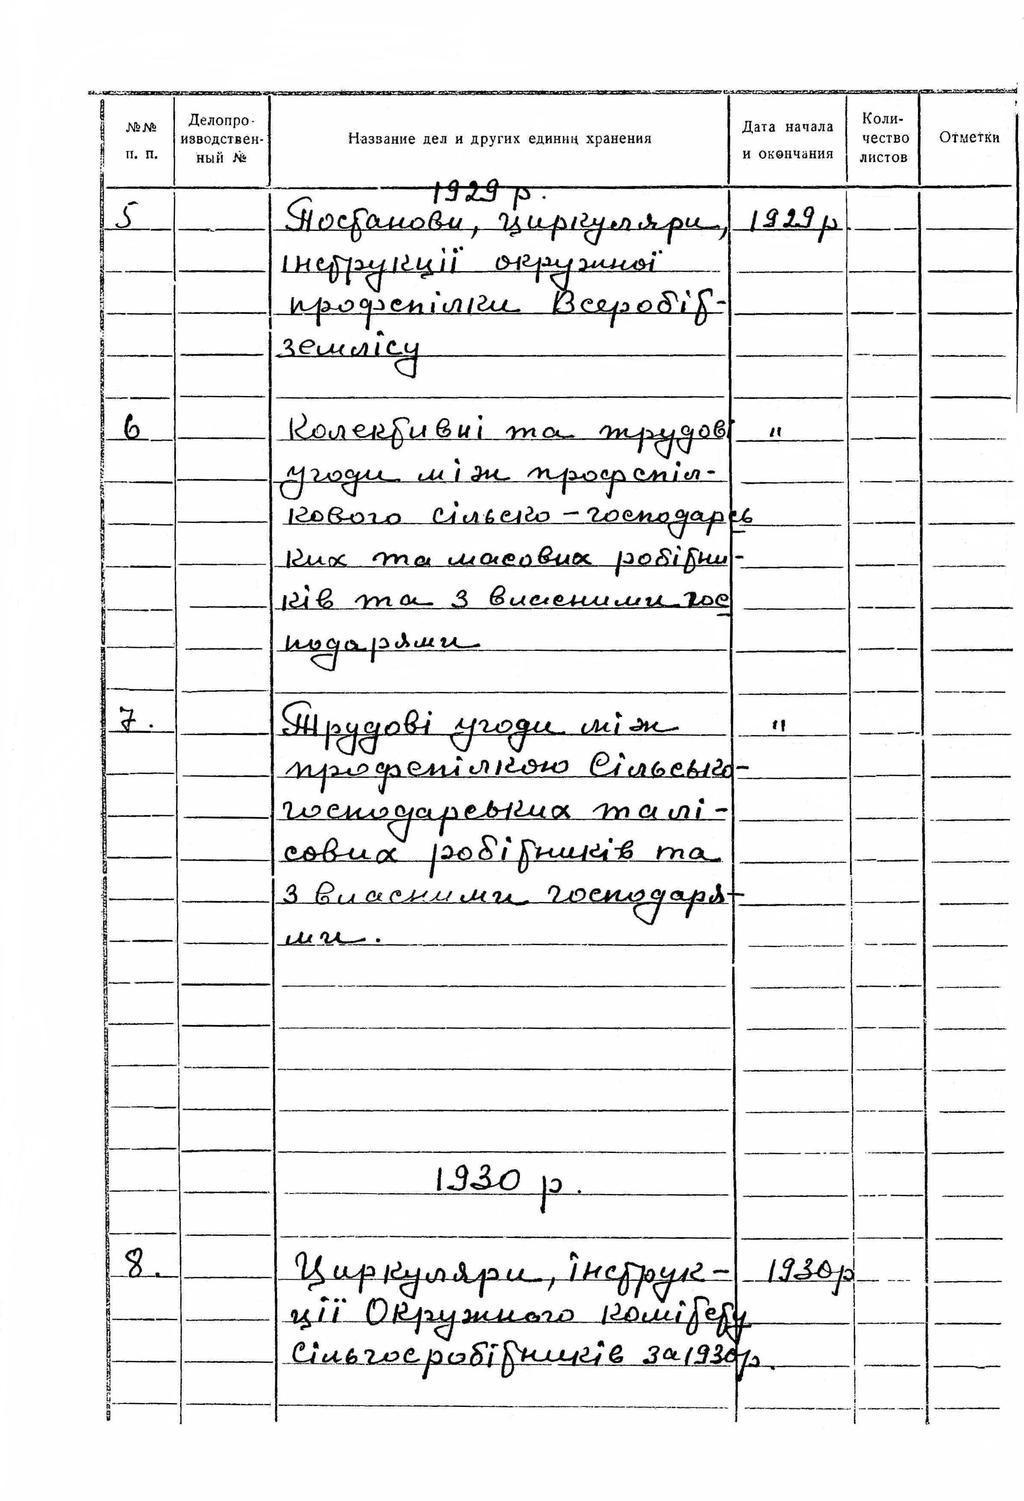 №№ п. п.
Делопро-
изводствен-
ный №
Название дел и других единиц хранения
Дата начала
и окончания
Коли-
чество
листов
Отметки
1929 р.
5 Постанови, циркуляри, 1929 р
інструкції окружної
профспілки Всеробіт-
землісу
6 Колективні та трудові "
угоди між профспіл-
кового сільсько-господарсь
ких та масових робітни-
ків та з власними гос
подарями
7. Трудові угоди між "
профспілкою Сільсько-
господарських та лі-
сових робітників та
з власними господаря-
ми.
1930 р.
8. Циркуляри, інструк- 1930р
ції Окружного комітету
Сільгосробітників за 1930р.